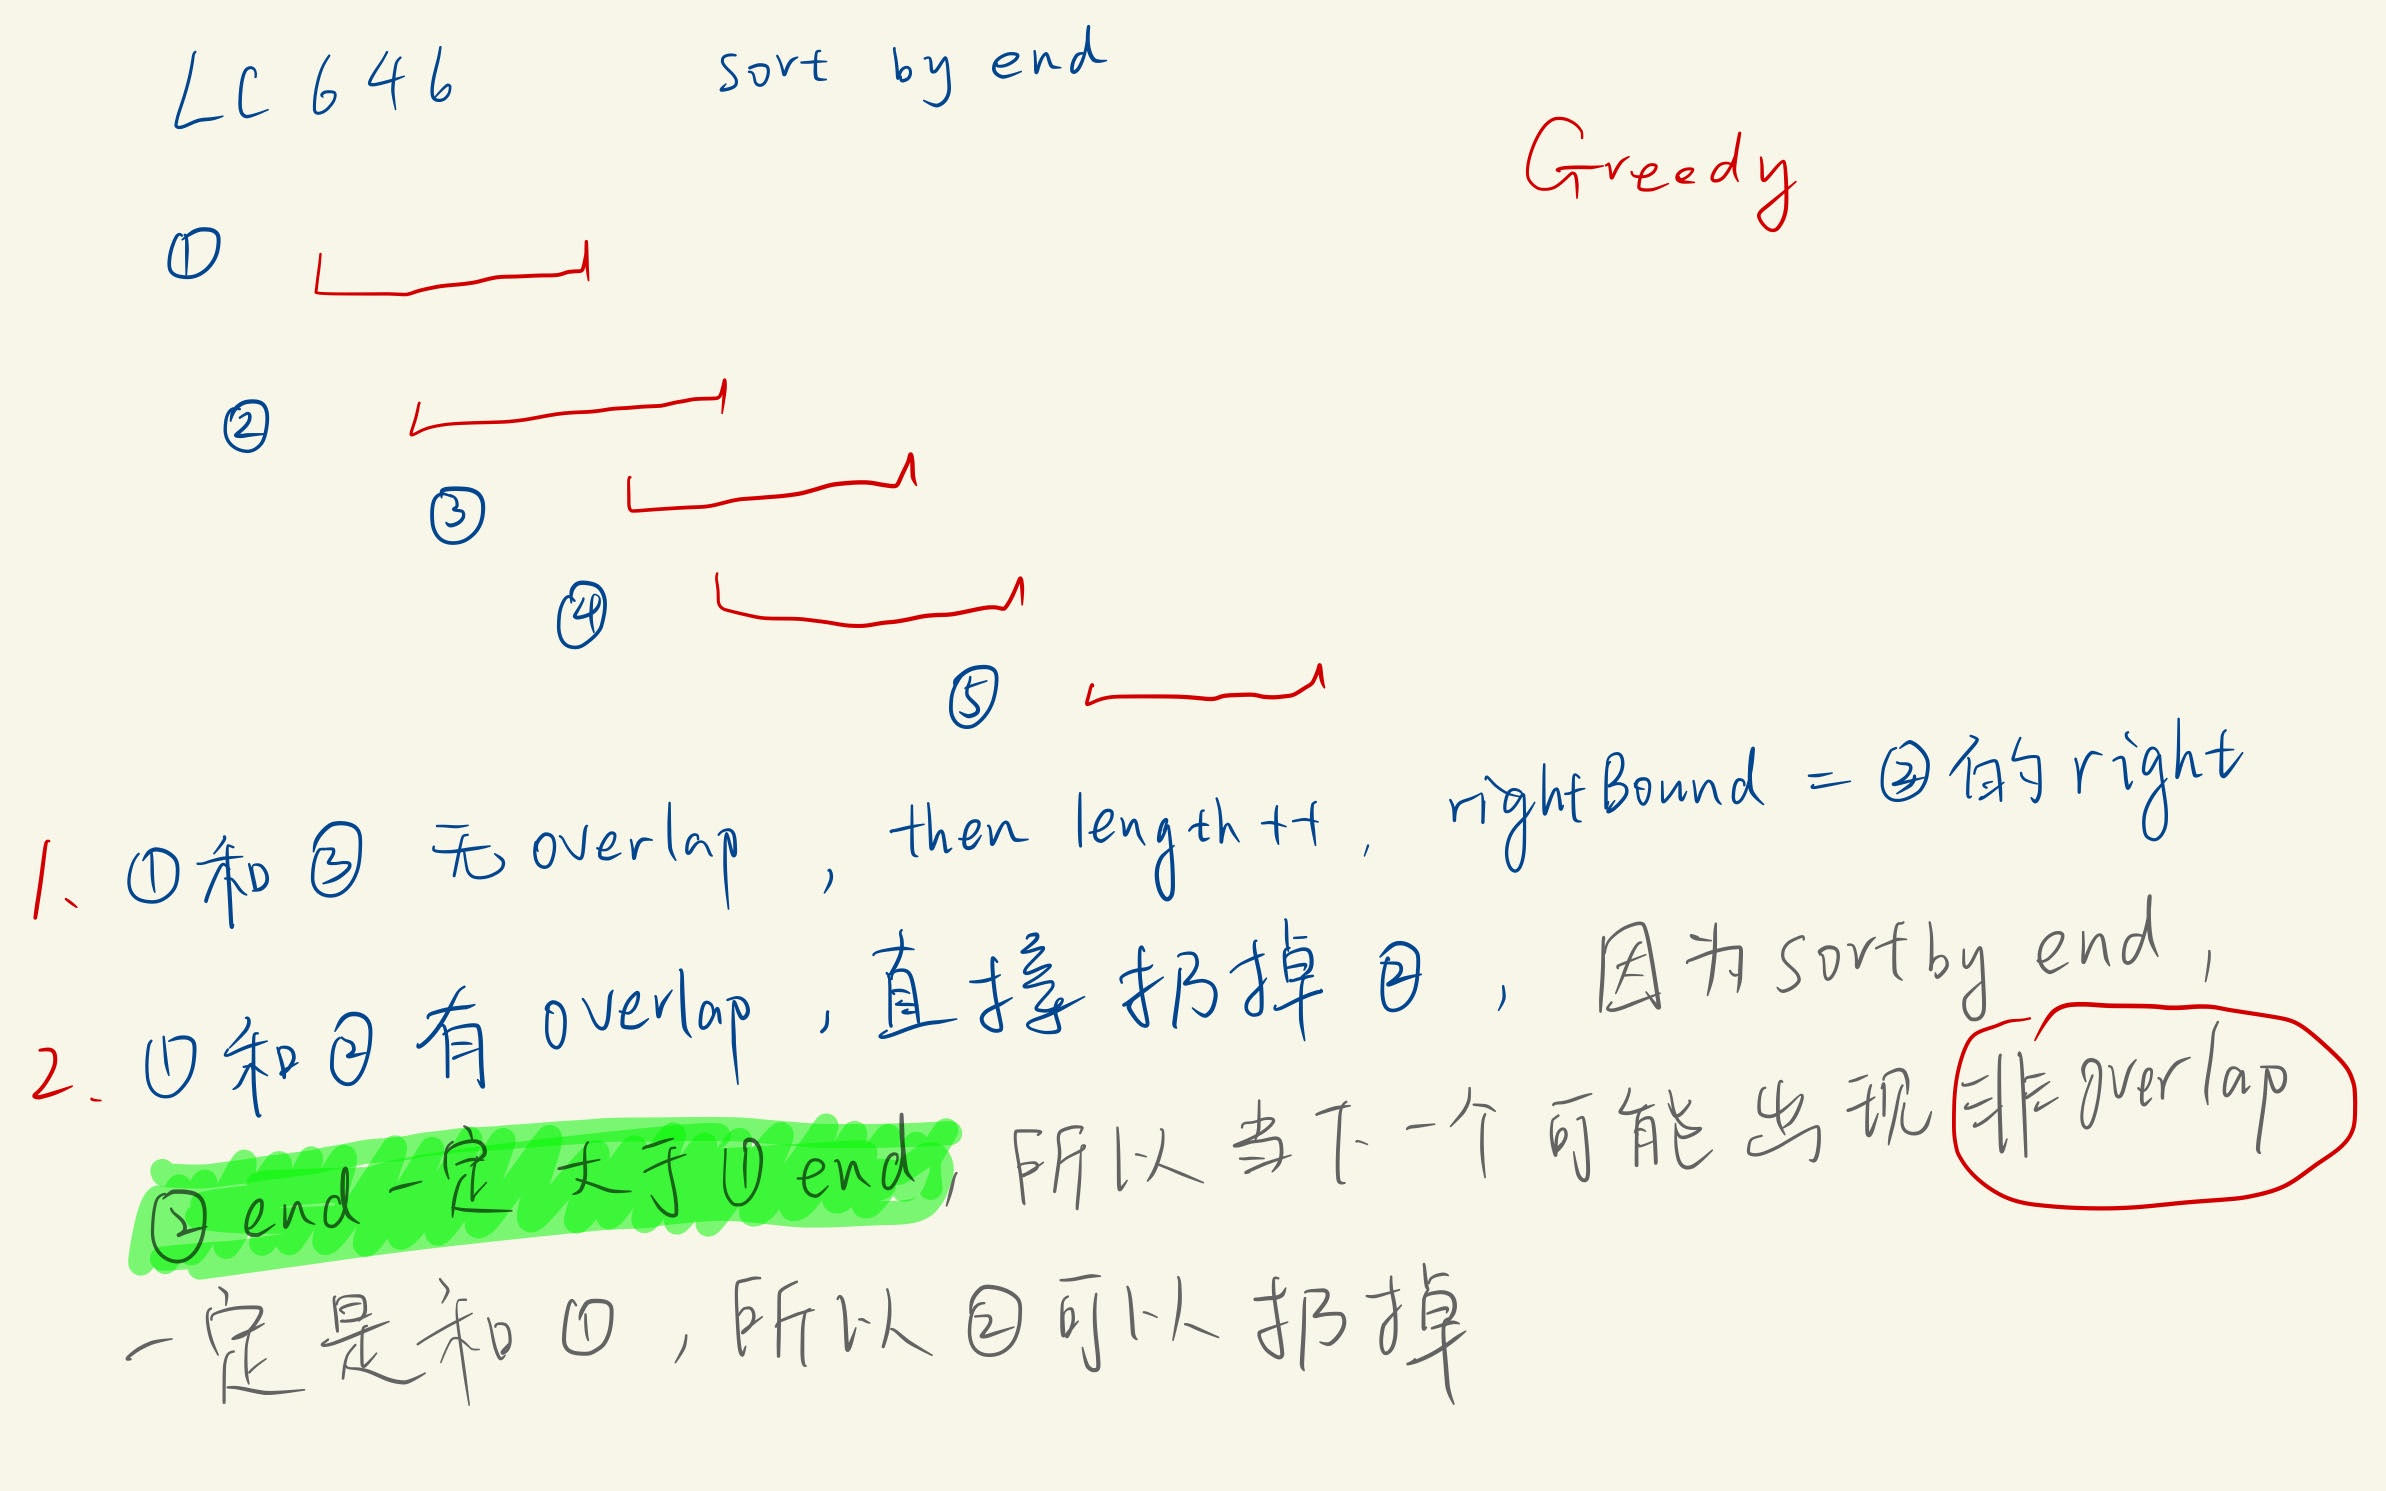 LC 646 sort by end
Greedy
①
②
③
④
⑤
1、①和②无overlap, then length++, rightBound = ②的right
2、①和②有overlap, 直接扔掉②, 因为sort by end,
②end一定大于①end, 所以当下一个可能出现非overlap
一定是和①, 所以②可以扔掉